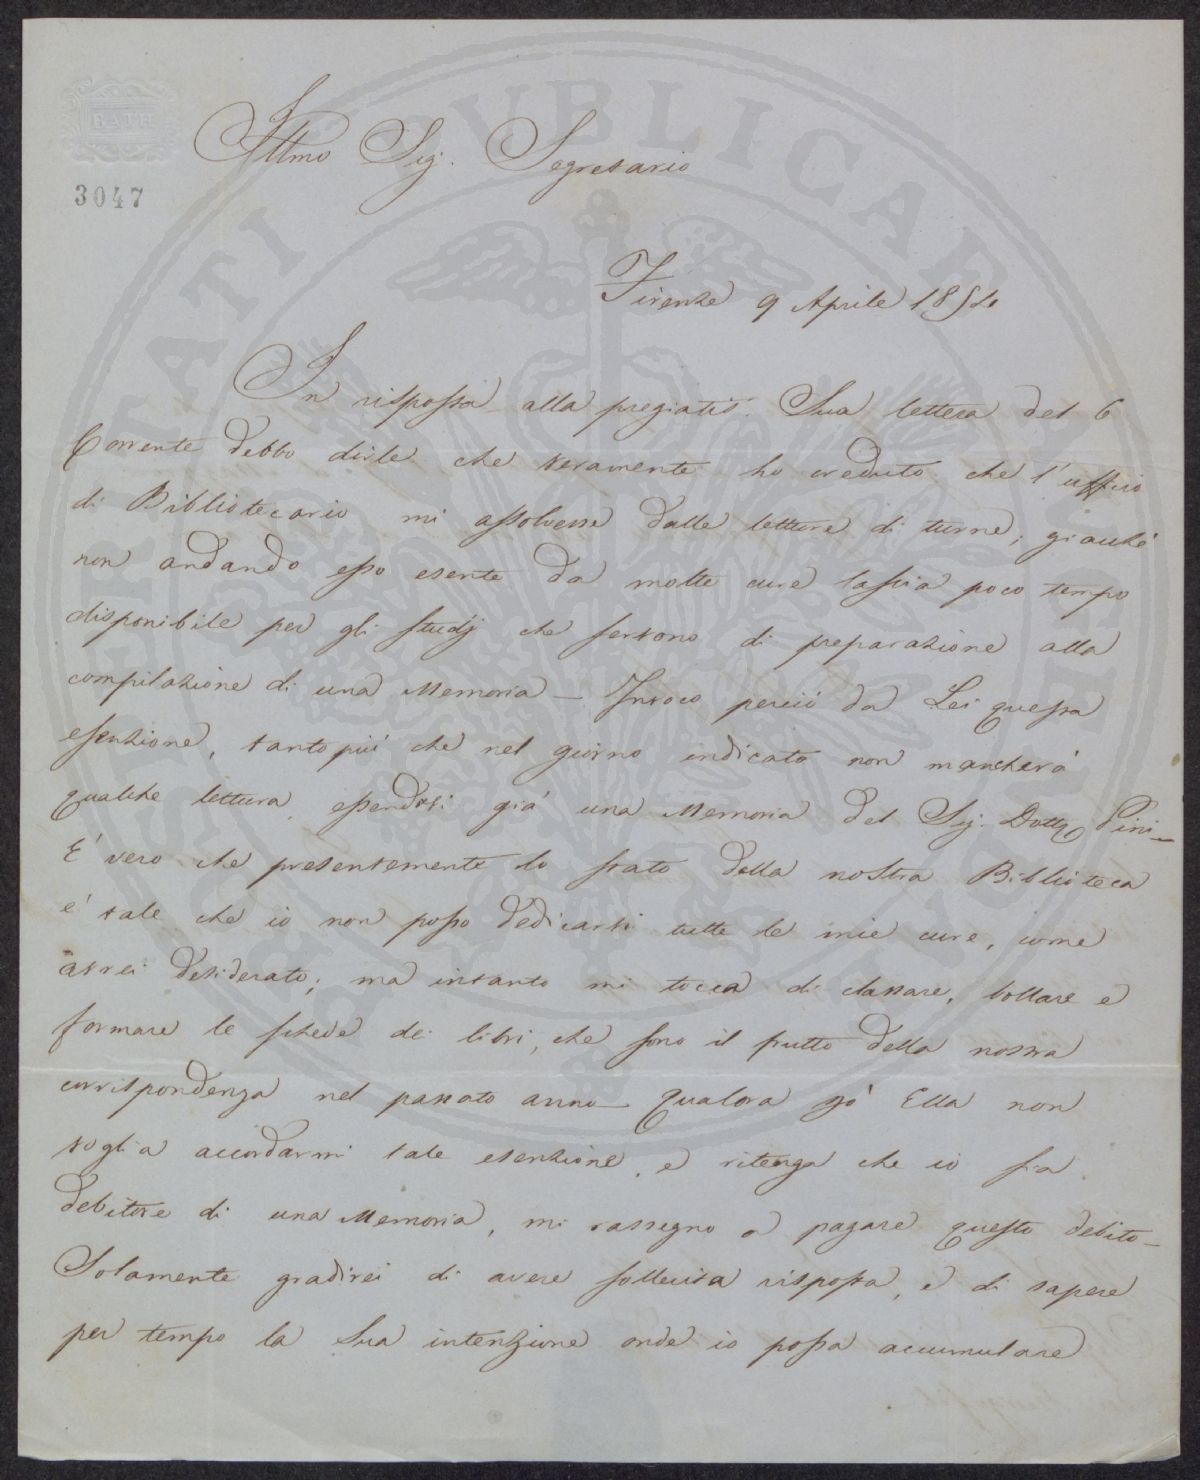 BATH
Illmo Sig. Segretario
3047
Firenze 9 Aprile 1854
In risposta alla pregiatis. Sua lettera del 6
Corrente debbo dirle che veramente ho creduto che l'uffizio
di Bibliotecario mi assolvesse dalle letture di turno; giacché
non andando esso esente da molte cure lascia poco tempo
disponibile per gli studj che servono di preparazione alla
compilazione di una Memoria — Invoco perciò da Lei questa
esenzione, tanto più che nel giorno indicato non mancherà
qualche lettura, essendovi già una Memoria del Sig. Dott. Pini —
E' vero che presentemente lo stato della nostra Biblioteca
e' tale che io non posso dedicarvi tutte le mie cure, come
avrei desiderato; ma intanto mi tocca di classare, bollare e
formare le schede dei libri, che sono il frutto della nostra
corrispondenza nel passato anno — Qualora però Ella non
voglia accordarmi tale esenzione, e ritenga che io sia
debitore di una Memoria, mi rassegno a pagare questo debito —
Solamente gradirei di avere sollecita risposta, e di sapere
per tempo la Sua intenzione onde io possa accumulare